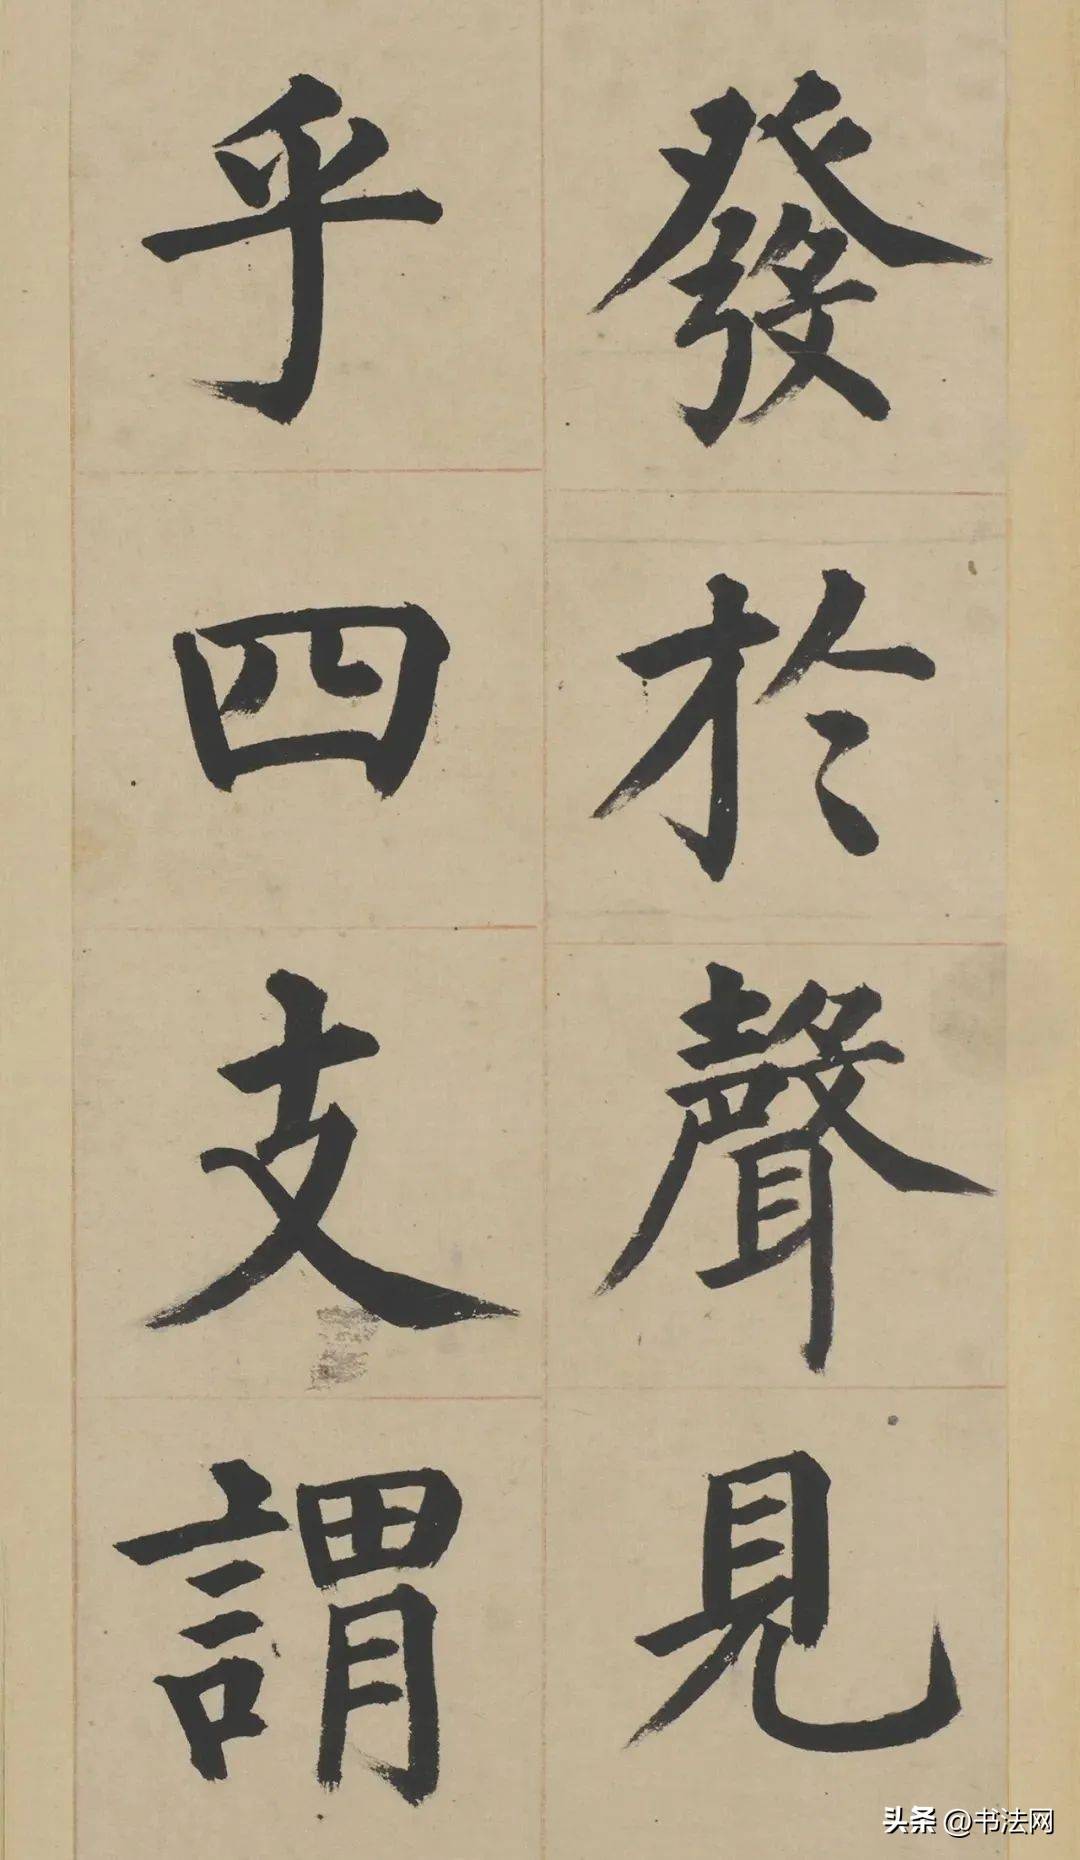 發於聲見
乎四支謂
头条 @书法网